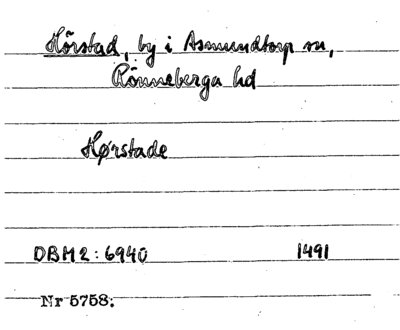 Hörstad, by i Asmundtorp sn,
Rönneberga hd
Hørstade
DBM2: 6940 1491
Nr 5758.